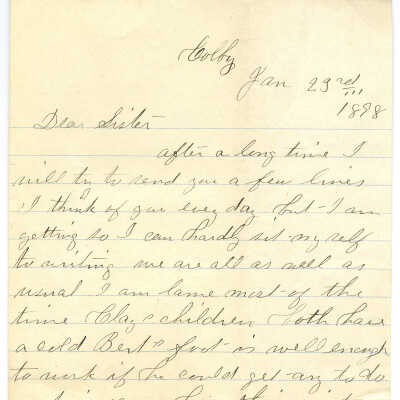 Colby
Jan 23rd
1898
Dear Sister
after a long time I
will try to send you a few lines
I think of you every day but I am
getting so I can hardly set my self
to writing we are all as well as
usual I am lame most of the
time Clays children both have
a cold Berts foot is well enough
to work if he could get any to do